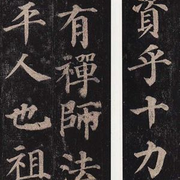 資乎十力
有禪師法
平人也祖